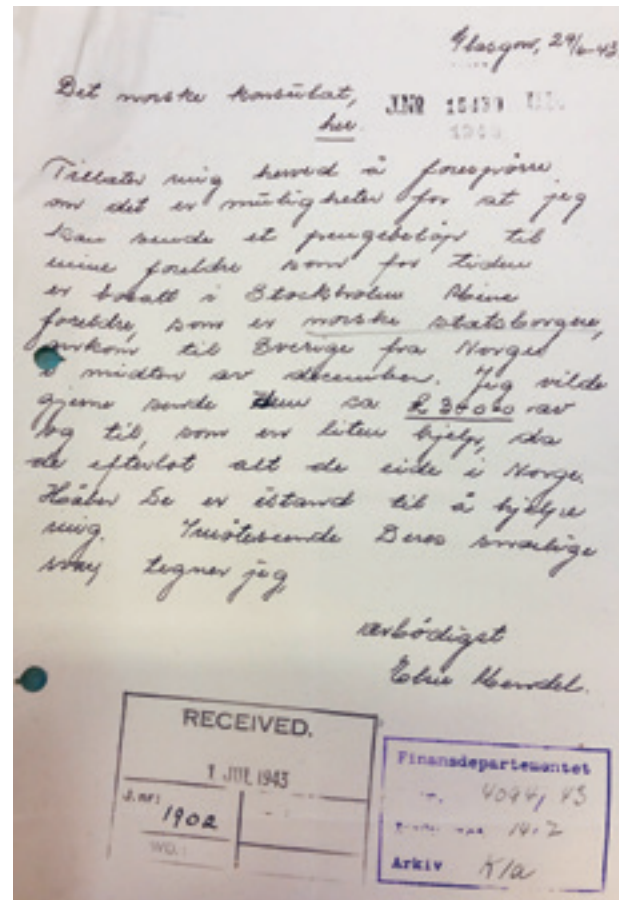 Glasgow, 29/6-43.
Det norske konsulat,
her.
J.NR 15439
1943
Tillater mig herved å forespörre
om det er muligheter for at jeg
kan sende et pengebelöp til
mine foreldre som for tiden
er bosatt i Stockholm. Mine
foreldre, som er norske statsborgere,
ankom til Sverige fra Norge
i midten av december. Jeg vilde
gjerne sende dem ca av
og til, som en liten hjelp, da
de efterlot alt de eide i Norge.
Håber De er istand til å hjelpe
mig. Imöteseende Deres
svar tegner jeg,
ærbödigst
Elsie
RECEIVED.
1 JUL 1943
J.nr:
1902
WD.:
Finansdepartementet
4094/43
14.2
Arkiv K/a